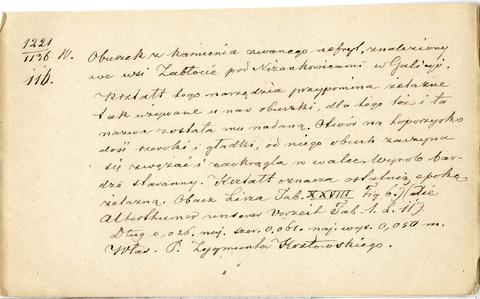 1221
1136 N. Obuszek z kamienia zwanego nefryt, znaleziony
116. we wsi Zabłocie pod Niżankowicami w Galicji.
Kształt tego narzędzia przypomina żelazne
tak używane u nas obuszki, dla tego też i ta
nazwa została mu nadaną. Otwór na toporzysko
dość szeroki i gładki, od niego obuch zaczyna
się zwężać i zaokrągla w walec. Wyrób bar-
dzo staranny. Kształt oznacza ostatnią epokę
żelazną. Obacz Liza Tab. XXVIII Fig 6. / Die
Alterthümer unserer Vorzeit Tab. 1. L. 11)
Dług 0,026. naj. szer. 0,061. naj. wys. 0,050 m.
Włas. P. Zygmunta Kozłowskiego.